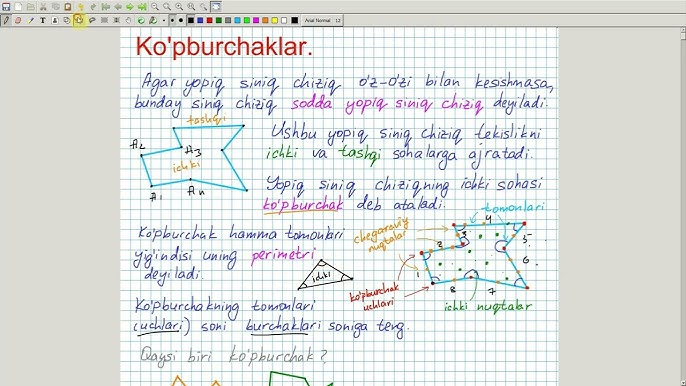 Arial Normal 12
Ko'pburchaklar.
Agar yopiq siniq chiziq o'z-o'zi bilan kesishmasa,
bunday sinq chiziq sodda yopiq siniq chiziq deyiladi.
tashqi
A2
A3
ichki
A1
An
Ushbu yopiq siniq chiziq tekislikni
ichki va tashqi sohalarga ajratadi.
Yopiq siniq chiziqning ichki sohasi
ko'pburchak deb ataladi.
Ko'pburchak hamma tomonlari
yig'indisi uning perimetri
deyiladi.
ichki
chegaraviy
nuqtalar
tomonlari
1
2
3
4
5
6
7
8
ko'pburchak
uchlari
ichki nuqtalar
Ko'pburchakning tomonlari
(uchlari) soni burchaklari soniga teng.
Qaysi biri ko'pburchak?